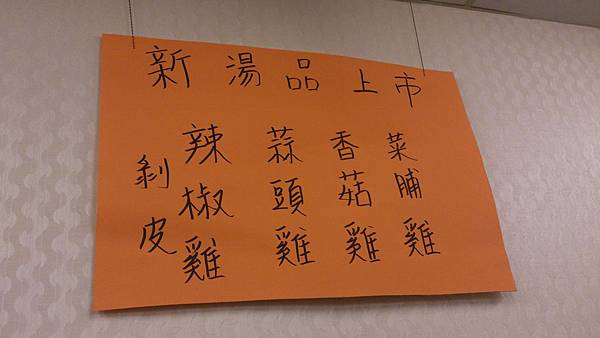 新湯品上市
菜脯雞
香菇雞
蒜頭雞
剝皮辣椒雞